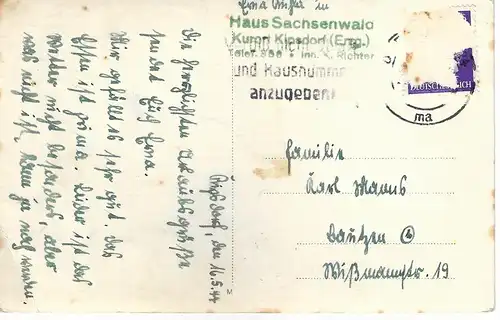 Erna Richter in
Haus Sachsenwald
Kurort Kipsdorf (Erzg.)
Telef. 356 • Inh. K. Richter
und Hausnummer
anzugeben!
DEUTSCHES REICH
ma
Kipsdorf, den 16.5.44
Die herzlichsten Urlaubsgrüße
sendet Euch Erna.
Mir gefällt es sehr gut. Das
Essen ist prima. Leider ist das
Wetter nicht besonders, aber
was nicht ist, kann ja noch werden.
Familie
Karl Manns
Bautzen
Wißmannstr. 19
M